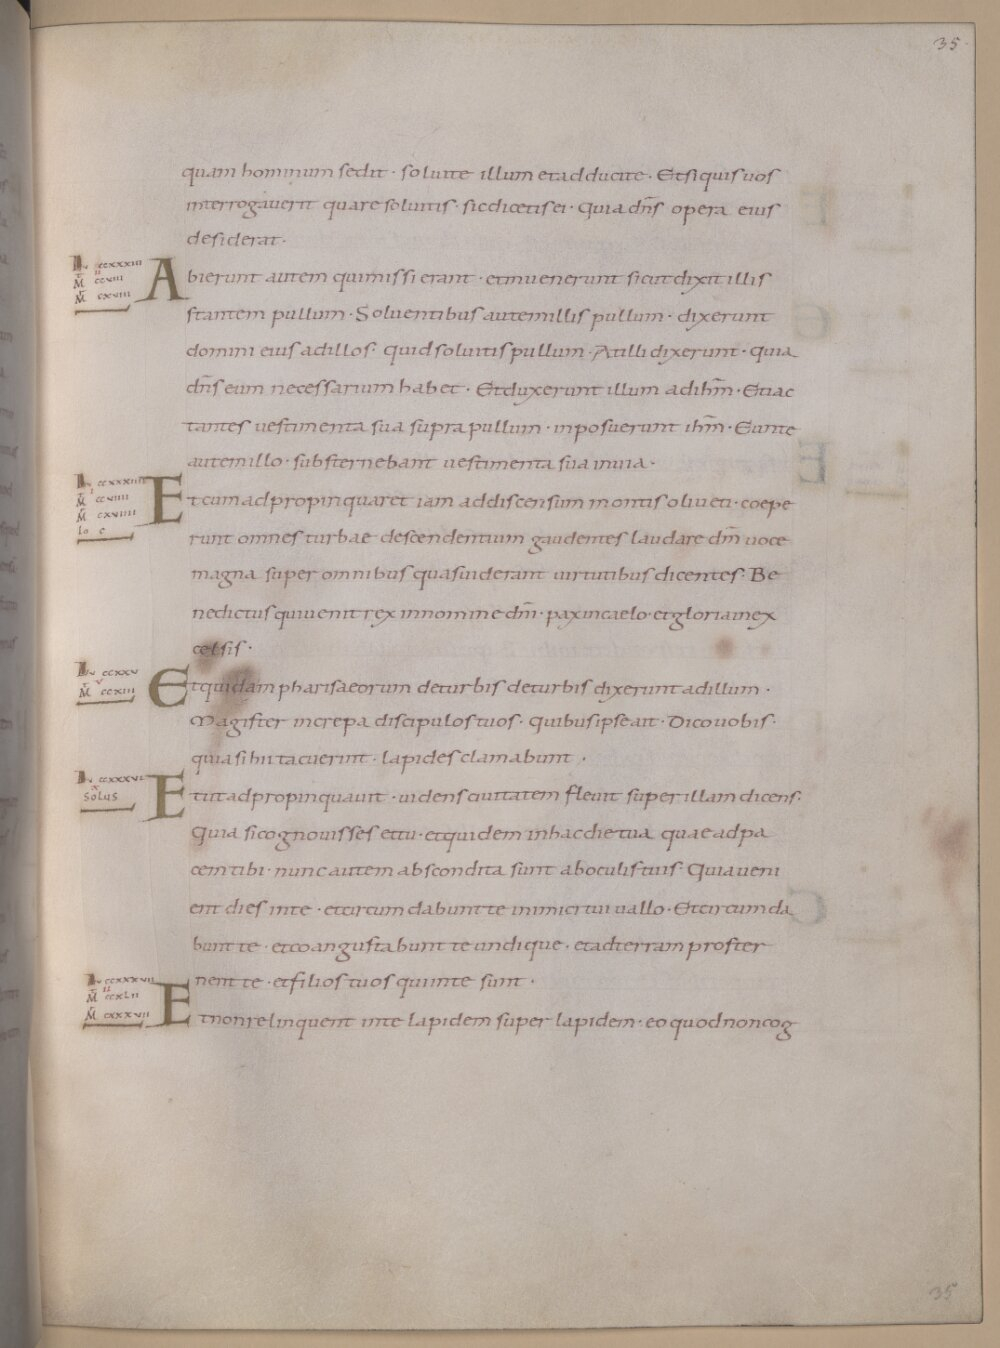 35
quam hominum sedit · soluite illum et adducite · Et si quis uos
interrogauerit quare soluitis · sic dicetis ei · Quia dn̄s opera eius
desiderat ·
Lu ccxxxiii
M̄ ccuiii
M̄ cxuiii
Abierunt autem qui missi erant · et inuenerunt sicut dixit illis
stantem pullum · Soluentibus autem illis pullum · dixerunt
domini eius ad illos · quid soluitis pullum · At illi dixerunt · quia
dn̄s eum necessarium habet · Et duxerunt illum ad ihm̄ · Et iac
tantes uestimenta sua supra pullum · inposuerunt ihm̄ · Eunte
autem illo · substernebant uestimenta sua in uia ·
Lu ccxxxiiii
M̄ ccuiiii
M̄ cxuiiii
Io c
Et cum adpropinquaret iam ad discensum montis oliueti · coepe
runt omnes turbae descendentium gaudentes laudare dm̄ uoce
magna super omnibus quas uiderant uirtutibus dicentes · Be
nedictus qui uenit rex in nomine dm̄i · pax in caelo · et gloria in ex
celsis ·
Lu ccxxxv
M̄ ccxiii
Et quidam pharisaeorum de turbis de turbis dixerunt ad illum ·
Magister increpa discipulos tuos · quibus ipse ait · Dico uobis ·
quia si hii tacuerint · lapides clamabunt ·
Lu ccxxxui
x
solus
Et ut adpropinquauit · uidens ciuitatem fleuit super illam dicens ·
Quia si cognouisses et tu · et quidem in hac die tua quae ad pa
cem tibi · nunc autem abscondita sunt ab oculis tuis · Quia ueni
ent dies in te · et circumdabunt te inimici tui uallo · Et circumda
bunt te · et coangustabunt te undique · et ad terram proster
nent te · et filios tuos qui in te sunt ·
Lu ccxxxuii
M̄ ccxlii
M̄ cxxxuii
Et non relinquent in te lapidem super lapidem · eo quod non cog
35